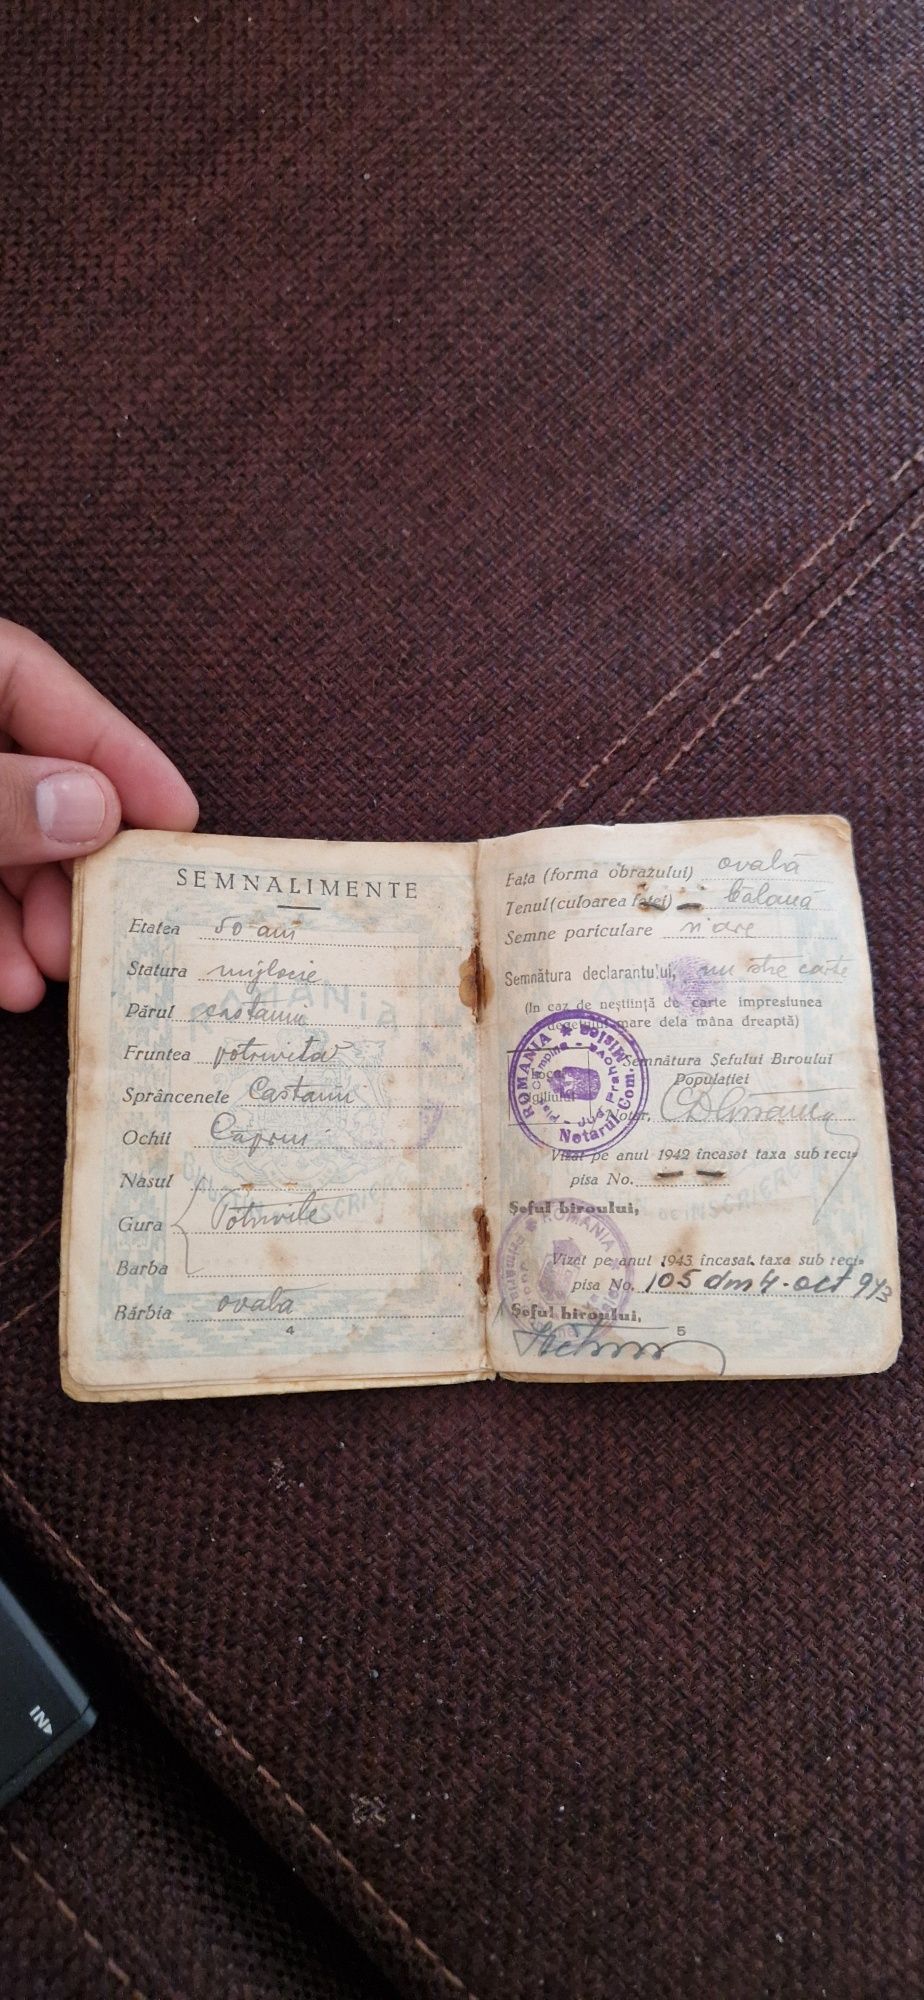 SEMNALIMENTE
Etatea 50 ani
Statura mijlocie
Părul castaniu
Fruntea potrivită
Sprâncenele Castanii
Ochii Caprui
Nasul
Gura Potrivite
Barba
Bărbia ovală
4
Fața (forma obrazului) ovală
Tenul (culoarea feței) bălană
Semne pariculare n'are
Semnătura declarantului, nu știe carte
(In caz de neștiință de carte impresiunea
degetului mare dela mâna dreaptă)
Semnătura Șefului Biroului
Populației
Notar,
ROMANIA
Notarul Com.
Vizat pe anul 1942 încasat taxa sub reci-
pisa No.
Șeful biroului,
ROMANIA
Vizat pe anul 1943 încasat taxa sub reci-
pisa No. 105 din 4. oct 943
Șeful biroului,
5
IN